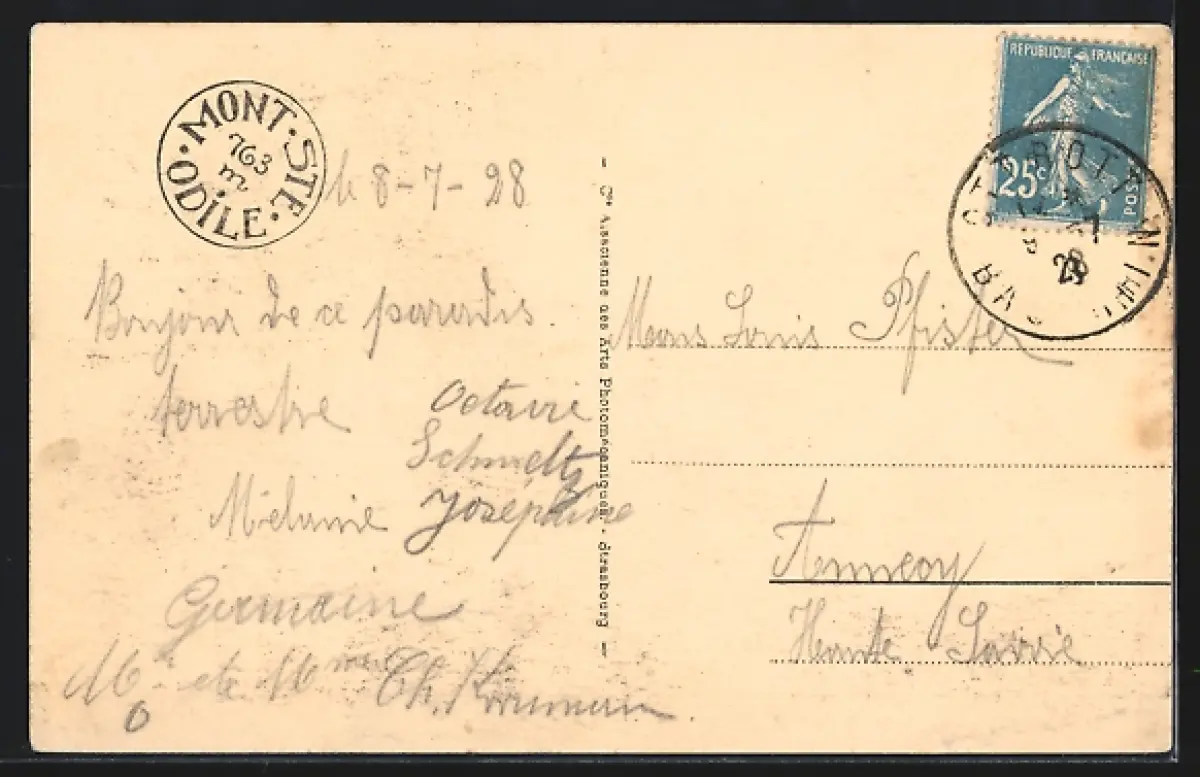 MONT · STE · ODILE ·
763 m
le 8-7-28
Bonjour de ce paradis
terrestre
Octavie
Schmeltz
Mélanie Joséphine
Germaine
Mr et Mme Ch.
Cie Alsacienne des Arts Photomécaniques - Strasbourg
REPUBLIQUE FRANÇAISE
25c POSTES
7
28
Mons Louis Pfister
Annecy
Haute Savoie